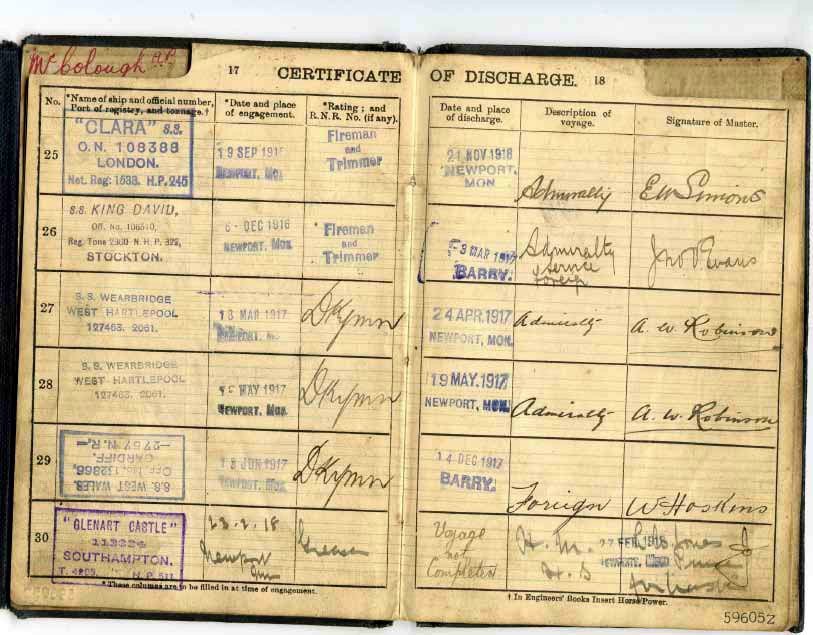 McColough
17 CERTIFICATE OF DISCHARGE. 18
No.
*Name of ship and official number,
Port of registry, and tonnage.†
*Date and place
of engagement.
*Rating; and
R.N.R. No. (if any).
Date and place
of discharge.
Description of
voyage.
Signature of Master.
25
"CLARA" S.S.
O.N. 108388
LONDON.
Net. Reg: 1538. H.P. 245
19 SEP 1916
NEWPORT, MON
Fireman
and
Trimmer
21 NOV 1916
NEWPORT,
MON
Admiralty
E W Simons
26
S.S. KING DAVID,
Off. No. 106510,
Reg. Tons 2300 N.H.P. 322,
STOCKTON.
6-DEC 1916
NEWPORT, MON.
Fireman
and
Trimmer
-3 MAR 1917
BARRY.
Admiralty
service
foreign
Jno Evans
27
S.S. WEARBRIDGE
WEST HARTLEPOOL
127463. 2061.
MAR 1917
NEWPORT, MON
DKymn
24 APR.1917
NEWPORT, MON.
Admiralty
A. W. Robinson
28
S.S. WEARBRIDGE
WEST HARTLEPOOL
127463. 2061.
MAY 1917
NEWPORT, MON.
DKymn
19 MAY.1917
NEWPORT, MON
Admiralty
A. W. Robinson
29
S.S. WEST WALES.
OFF. NO. 132866,
CARDIFF.
—2767 N.R.—
13 JUN 1917
NEWPORT. MON.
DKymn
14 DEC 1917
BARRY.
Foreign
W Hoskins
30
"GLENART CASTLE"
SOUTHAMPTON.
H.P. 511
23.2.18
Newport
Mon
Greaser
Voyage
not
Completed
H. M.
H. S
27 FEB 1918
NEWPORT, MON
Jones
*These columns are to be filled in at time of engagement.
† In Engineers' Books Insert Horse Power.
596052